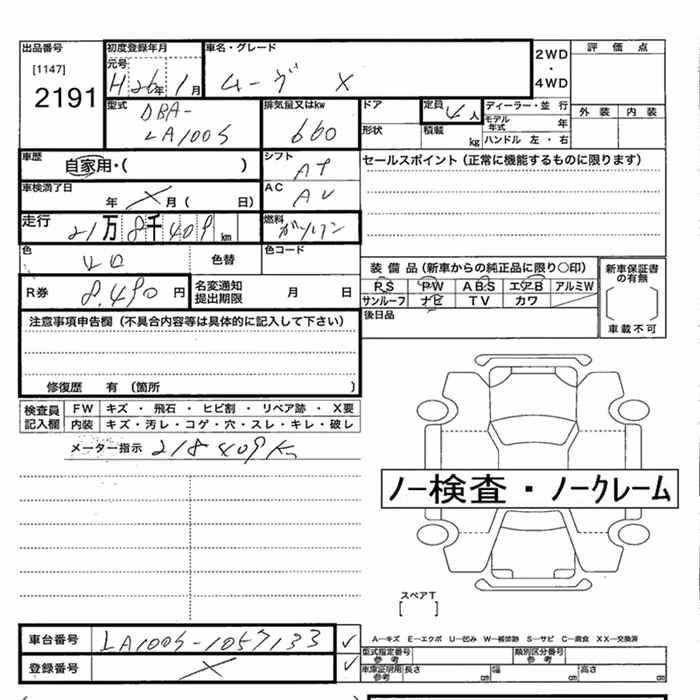 出品番号 初度登録年月 車名・グレード
[1147] 元号
2191 H26年 1月 ムーヴ X
2WD ・ 4WD
評価点
外装 内装
型式 排気量又はkw ドア 定員 ディーラー・並行
DBA-
LA100S 660 4人
形状 積載 kg
モデル年式 年
ハンドル 左・右
車歴 自家用・( ) シフト AT
セールスポイント(正常に機能するものに限ります)
車検満了日 年 X 月( 日) AC
走行 21万8千409km 燃料 ガソリン
色 シロ 色替 色コード
装備品(新車からの純正品に限り〇印) 新車保証書の有無
R券 8,490円 名変通知提出期限 月 日
PS PW ABS エアB アルミW
サンルーフ ナビ TV カワ
車載不可
後日品
注意事項申告欄(不具合内容等は具体的に記入して下さい)
修復歴 有(箇所 )
検査員記入欄 FW キズ・飛石・ヒビ割・リペア跡・X要
内装 キズ・汚レ・コゲ・穴・スレ・キレ・破レ
メーター指示 218409K
ノー検査・ノークレーム
スペアT
[ ]
車台番号 LA100S-1057133 ✓
A―キズ E―エクボ U―凹み W―補修跡 S―サビ C―腐食 XX―交換済
登録番号 X ✓
型式指定番号 参考 類別区分番号 参考
車庫証明用 参考 長さ cm 幅 cm 高さ cm